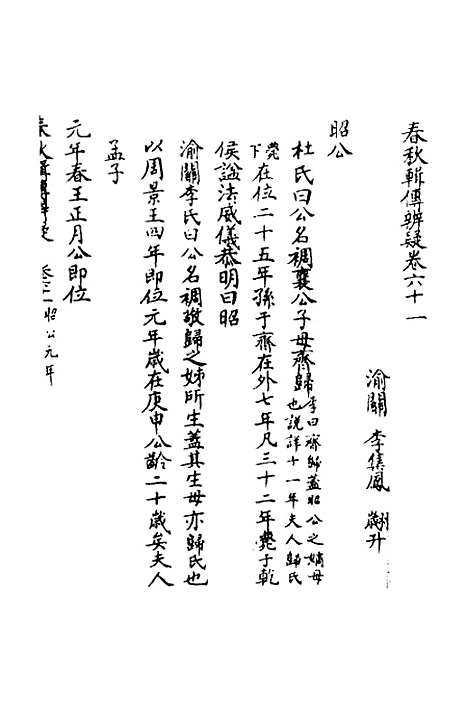 春秋輯傳辨疑卷六十一
渝關 李集鳳 翽升
昭公
杜氏曰公名裯襄公子母齊歸李曰齊歸蓋昭公之嫡母也說詳十一年夫人歸氏
薨下在位二十五年孫于齊在外七年凡三十二年薨于乾
侯謚法威儀恭明曰昭
渝關李氏曰公名裯敬歸之娣所生蓋其生母亦歸氏也
以周景王四年即位元年歲在庚申公齡二十歲矣夫人
孟子
元年春王正月公即位
春秋輯傳辨疑 卷六十一 昭公元年